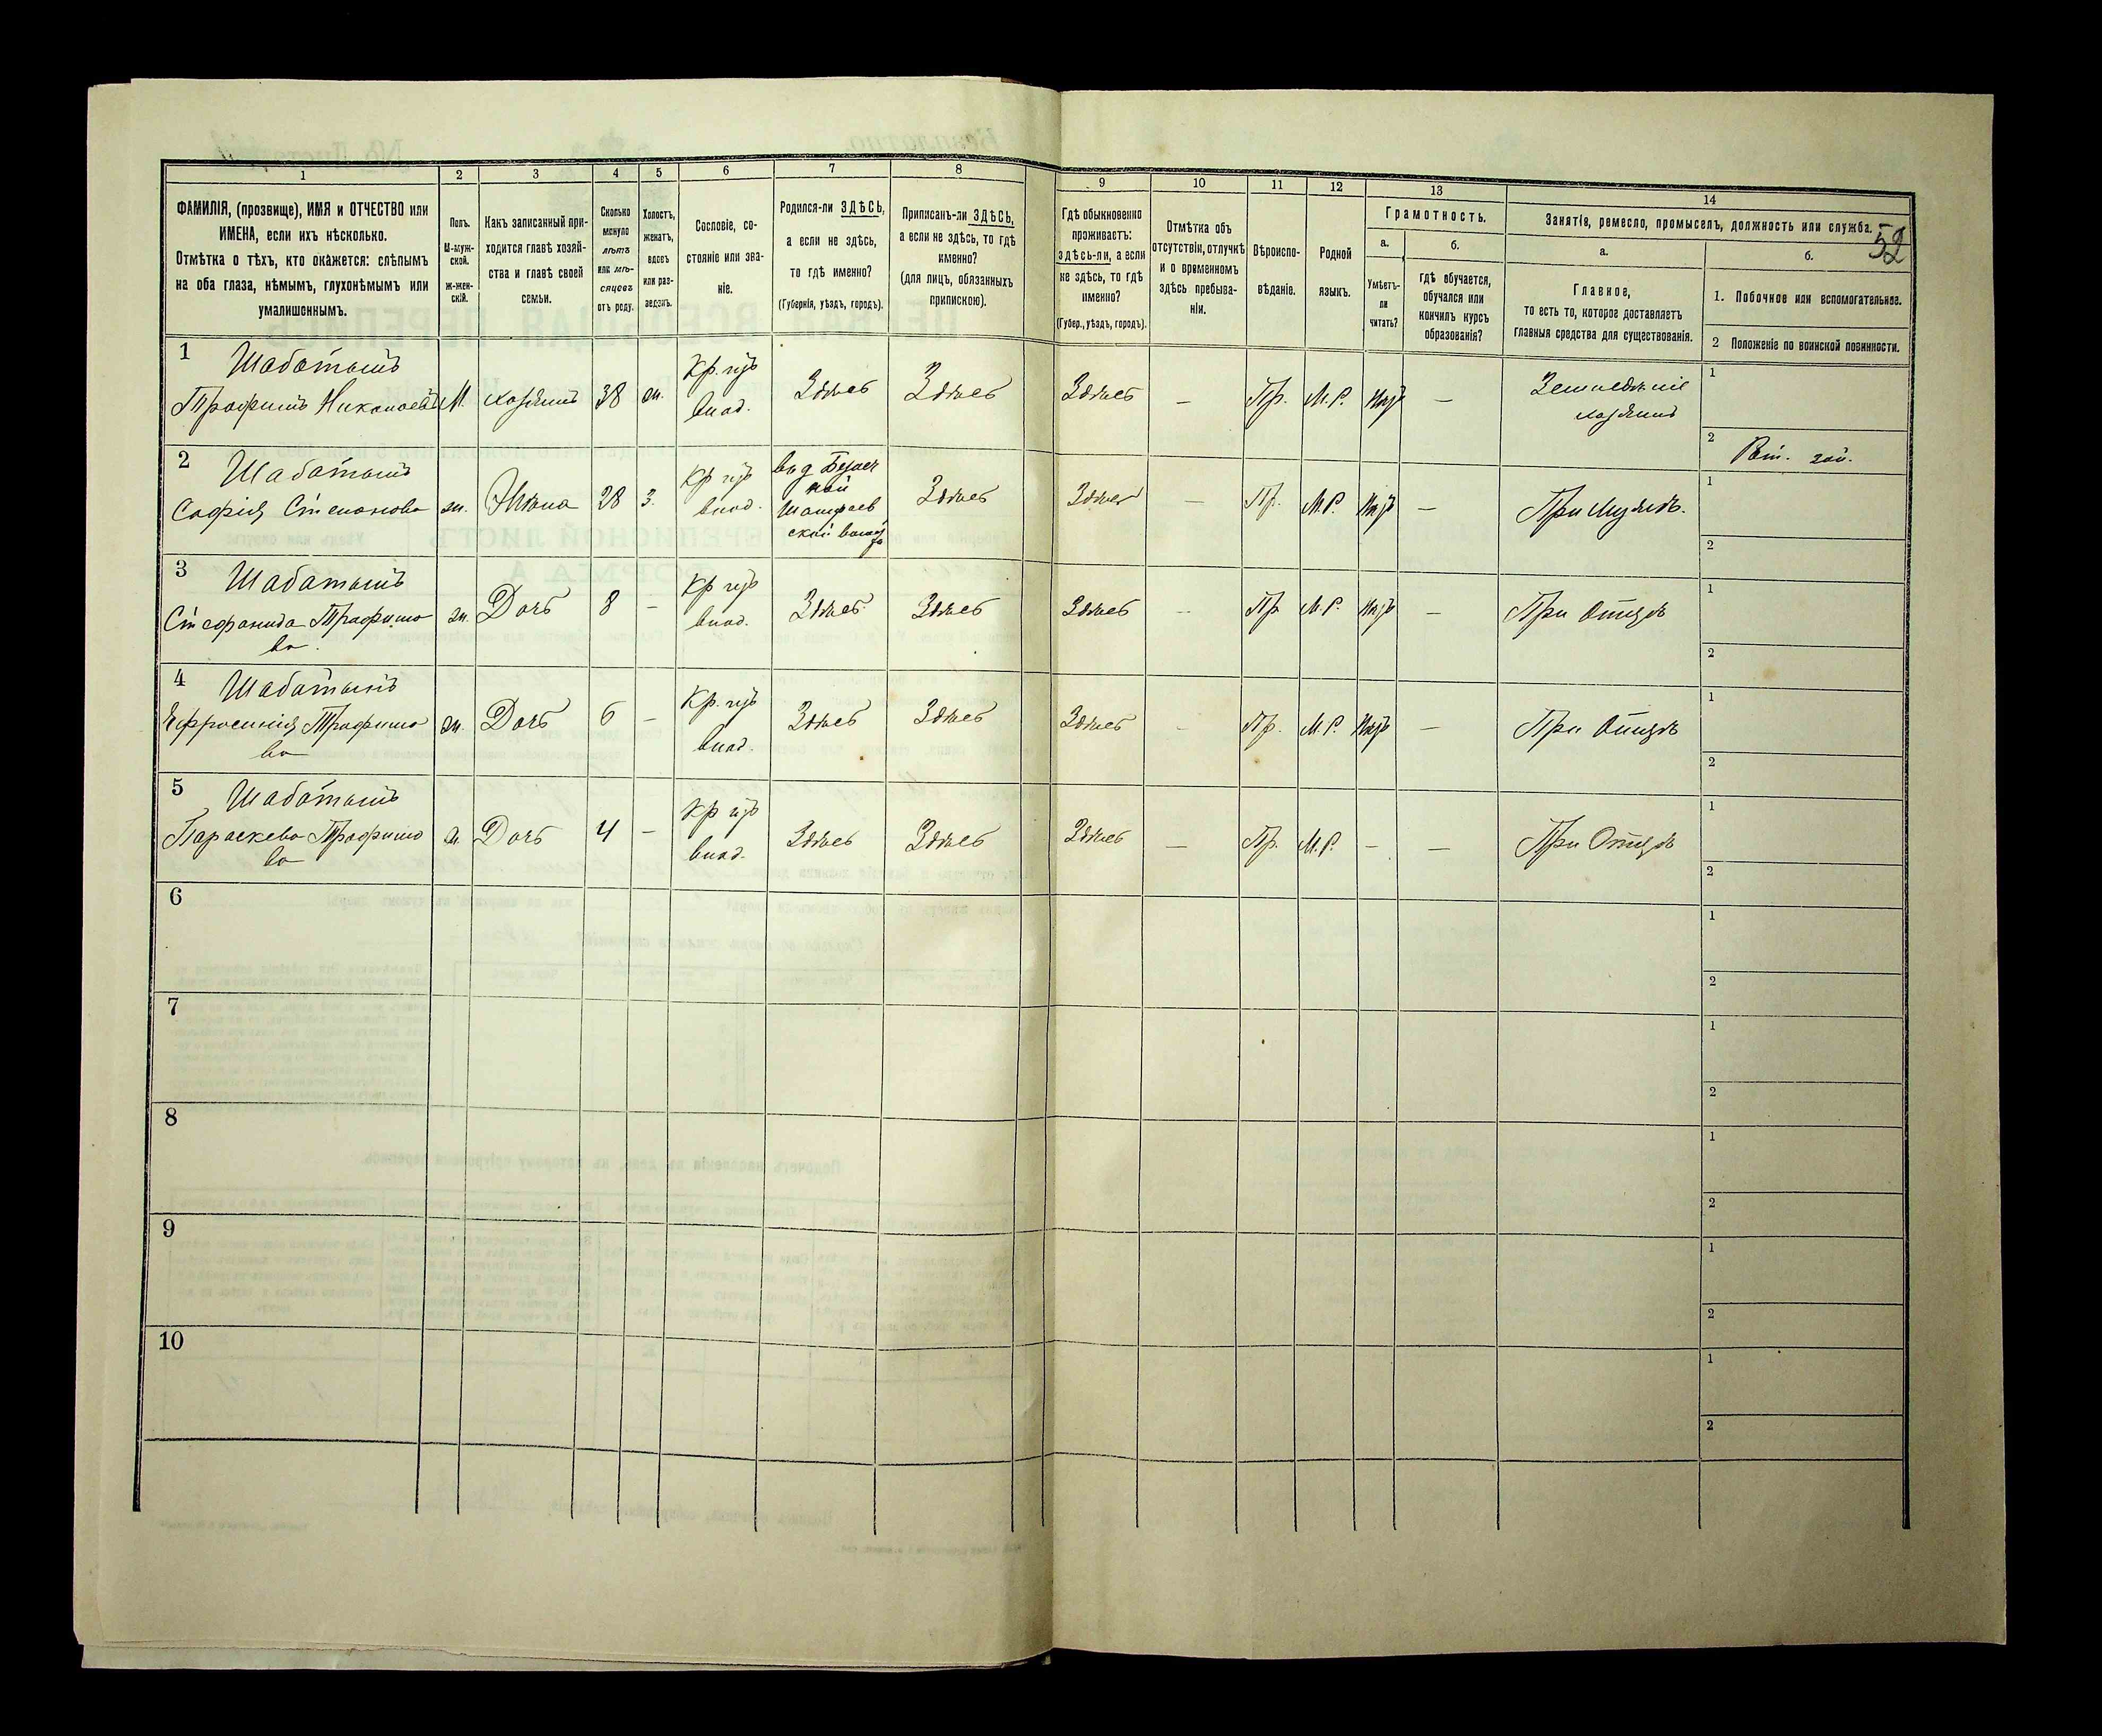 1 2 3 4 5 6 7 8 9 10 11 12 13 14
52
ФАМИЛІЯ, (прозвище), ИМЯ и ОТЧЕСТВО или
ИМЕНА, если ихъ нѣсколько.
Отмѣтка о тѣхъ, кто окажется: слѣпымъ
на оба глаза, нѣмымъ, глухонѣмымъ или
умалишеннымъ.
Полъ.
М-муж-
ской.
Ж-жен-
скій.
Какъ записанный при-
ходится главѣ хозяй-
ства и главѣ своей
семьи.
Сколько
минуло
лѣтъ
или мѣ-
сяцевъ
отъ роду.
Холостъ,
женатъ,
вдовъ
или раз-
веденъ.
Сословіе, со-
стояніе или зва-
ніе.
Родился-ли ЗДѢСЬ,
а если не здѣсь,
то гдѣ именно?
(Губернія, уѣздъ, городъ).
Приписанъ-ли ЗДѢСЬ,
а если не здѣсь, то гдѣ
именно?
(для лицъ, обязанныхъ
припискою).
Гдѣ обыкновенно
проживаетъ:
здѣсь-ли, а если
не здѣсь, то гдѣ
именно?
(Губер., уѣздъ, городъ).
Отмѣтка объ
отсутствіи, отлучкѣ
и о временномъ
здѣсь пребыва-
ніи.
Вѣроиспо-
вѣданіе.
Родной
языкъ.
Грамотность.
а.
Умѣетъ-
ли
читать?
б.
гдѣ обучается,
обучался или
кончилъ курсъ
образованія?
Занятіе, ремесло, промыселъ, должность или служба.
а.
Главное,
то есть то, которое доставляетъ
главныя средства для существованія.
б.
1. Побочное или вспомогательное.
2 Положеніе по воинской повинности.
1 Шабатынъ
Трофимъ Николаевъ М. хозяинъ 38 ж. Кр. изъ
влад. Здѣсь Здѣсь Здѣсь — Пр. М.Р. Нѣтъ — Земледѣліе
хозяинъ
1
2
2 Шабатынъ
Софія Степанова ж. Жена 28 з. Кр изъ
влад. Здѣсь Здѣсь — Пр. М.Р. Нѣтъ — При Мужѣ.
1
2
3 Шабатынъ
Стефанида Трофимо
ва. ж. Дочь 8 — Кр изъ
влад. Здѣсь Здѣсь Здѣсь — Пр М.Р. Нѣтъ — При Отцѣ
1
2
4 Шабатынъ
Ефросинія Трофимо
ва ж. Дочь 6 — Кр. изъ
влад. Здѣсь Здѣсь Здѣсь - Пр. М.Р. Нѣтъ — При Отцѣ
1
2
5 Шабатынъ
Параскева Трофимо
ва ж. Дочь 4 — Кр изъ
влад. Здѣсь Здѣсь Здѣсь — Пр. М.Р. — — При Отцѣ
1
2
6
1
2
7
1
2
8
1
2
9
1
2
10
1
2